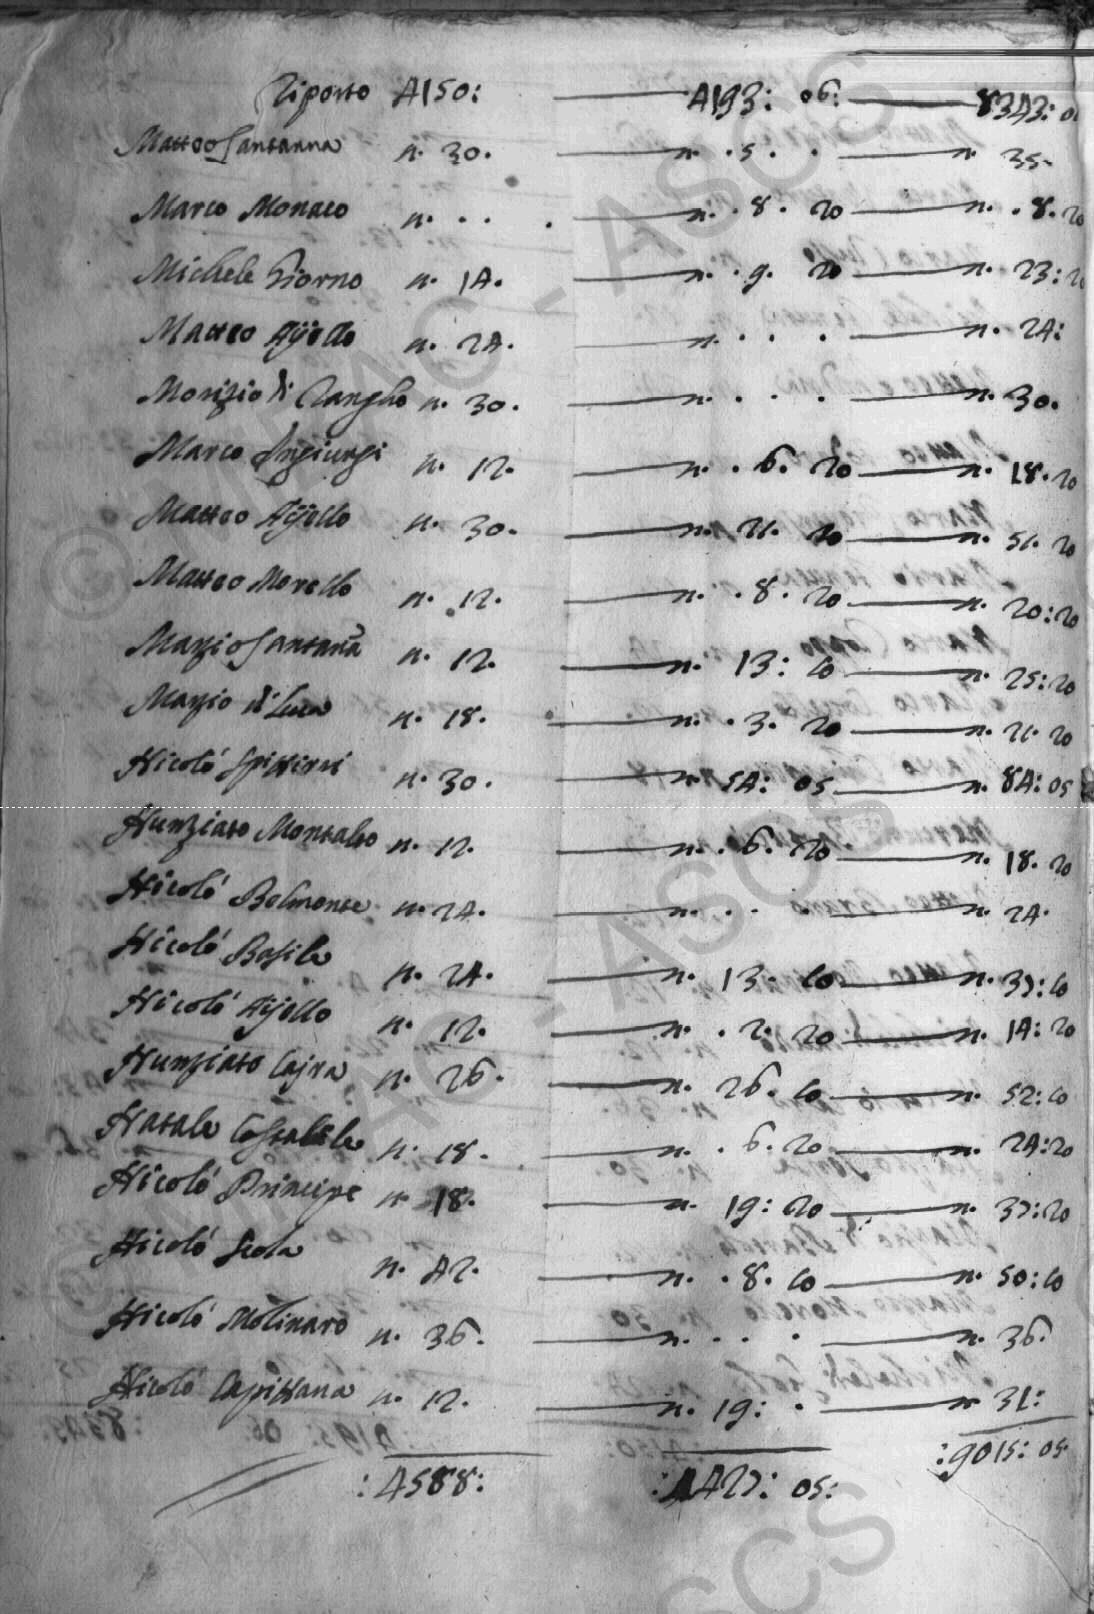 Riporto 4150: 4193: 06: 8343: 06
Matteo Santanna n. 30. n. .5. . n. 35.
Marco Monaco n. . . . n. .8. 20 n. .8. 20
Michele Giorno n. 14. n. .9. 20 n. 23: 20
Matteo Ajello n. 24. n. . . . n. 24:
Morizio di n. 30. n. . . . n. 30.
Marco n. 12. n. .6. 20 n. 18. 20
Matteo Ajello n. 30. n. 21. 20 n. 51. 20
Matteo Morello n. 12. n. .8. 20 n. 20: 20
Marzio Santanna n. 12. n. 13: 10 n. 25: 20
Marzio di Luca n. 18. n. .3. 20 n. 21. 20
Nicoló Spizzirri n. 30. n. 54: 05 n. 84: 05
Nunziato Montalto n. 12. n. .6. 20 n. 18. 20
Nicoló Belmonte n. 24. n. . . . n. 24.
Nicoló Basile n. 24. n. 13. 10 n. 37: 10
Nicoló Ajello n. 12. n. .2. 20 n. 14: 20
Nunziato Cajra n. 26. n. 26. 10 n. 52: 10
Natale Costabile n. 18. n. .6. 20 n. 24: 20
Nicoló Principe n. 18. n. 19: 20 n. 37: 20
Nicoló Scola n. 42. n. .8. 10 n. 50: 10
Nicoló Molinaro n. 36. n. . . . n. 36.
Nicoló Capizzana n. 12. n. 19: . n. 31:
:4588: :4427: 05: :9015: 05
© MIBAC - ASCS
© MIBAC - ASCS
ASCS